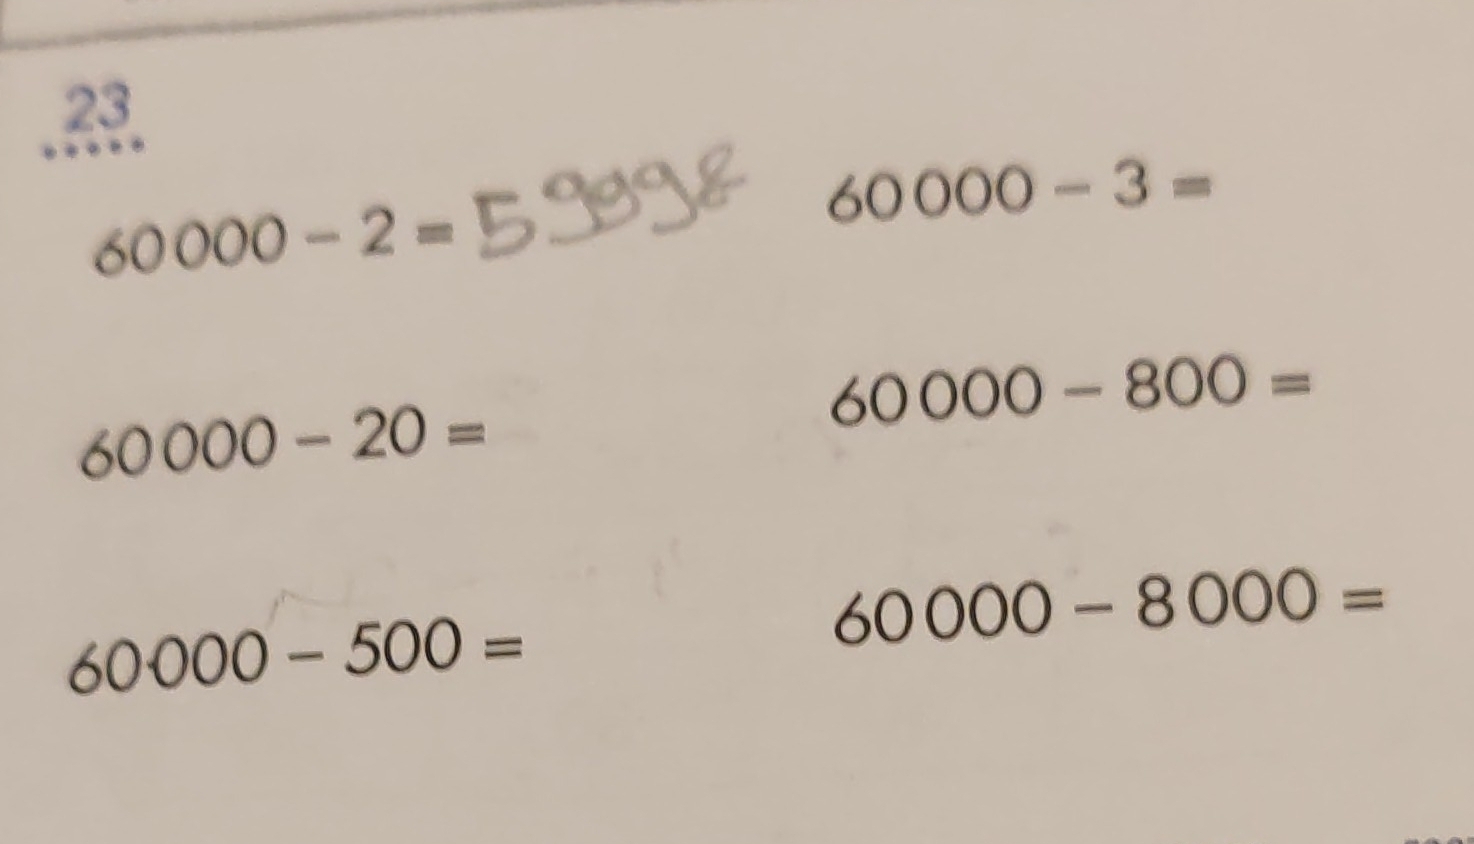 23
60 000 – 2 = 59998
60 000 – 3 =
60 000 – 20 =
60 000 – 800 =
60 000 – 500 =
60 000 – 8 000 =